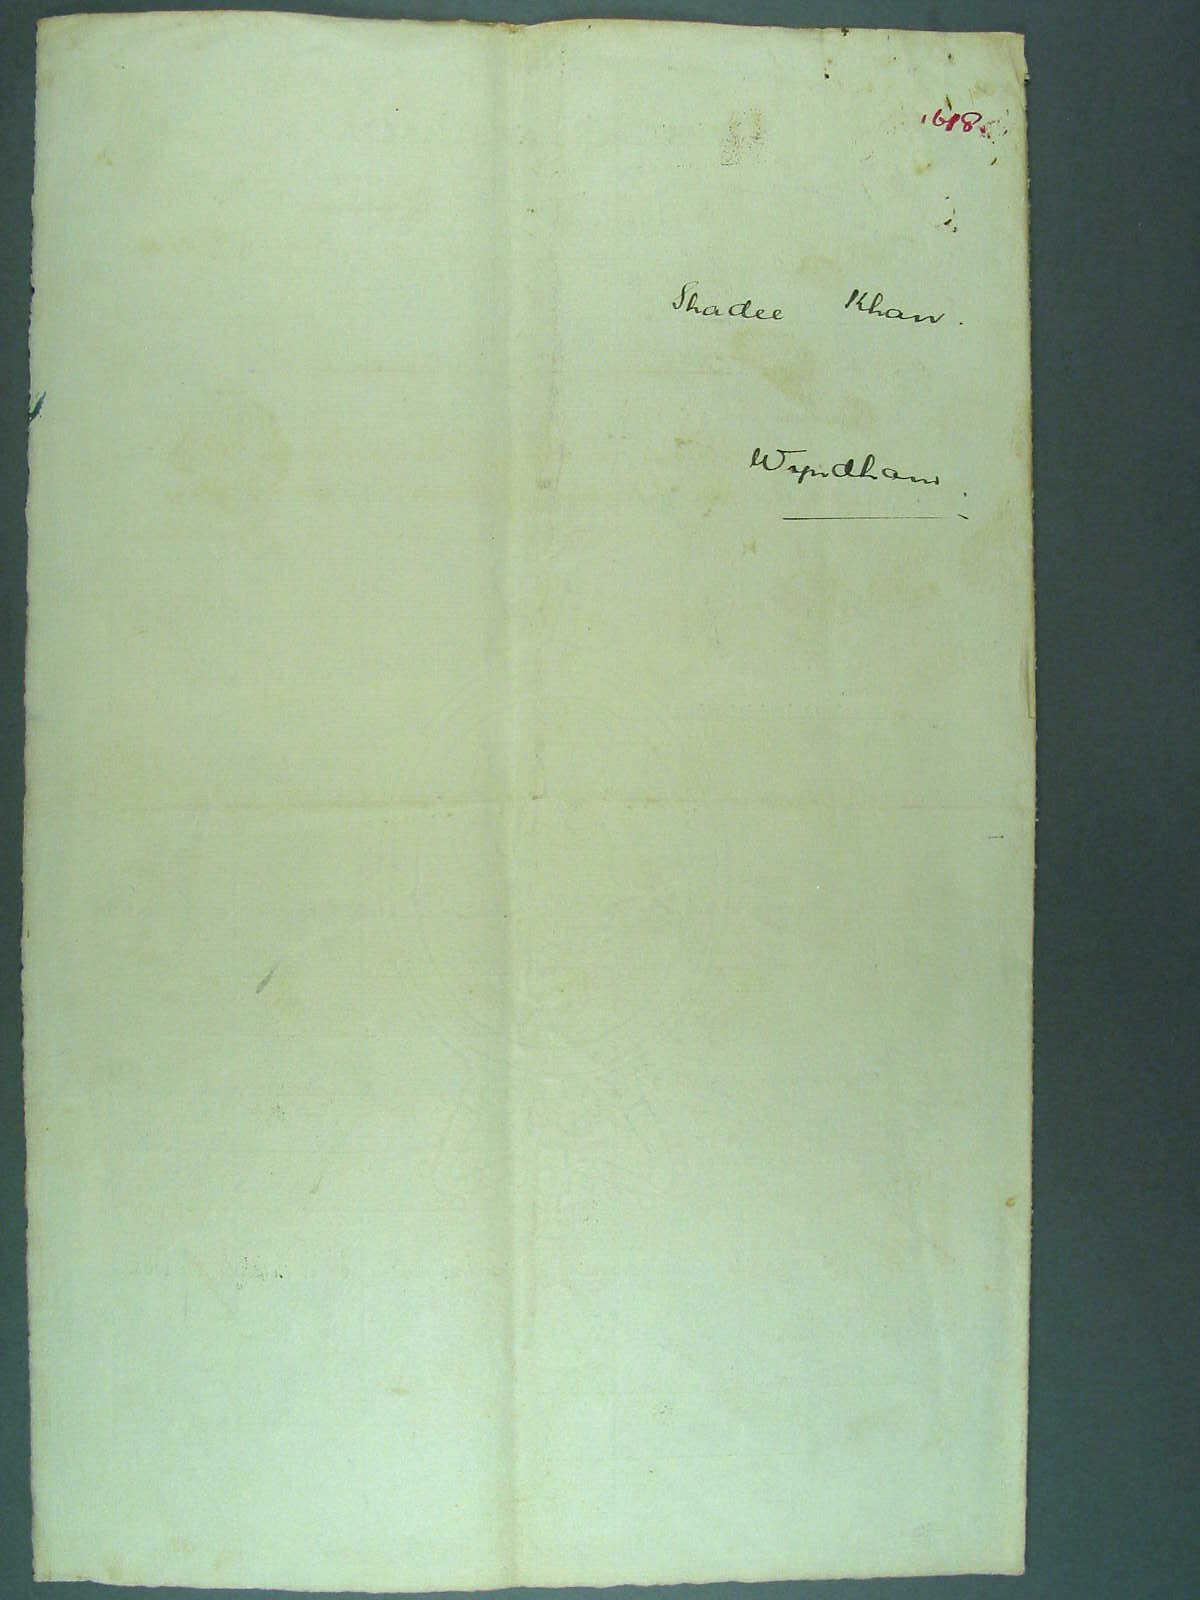 1618.
Shadee Khan.
Wyndham.